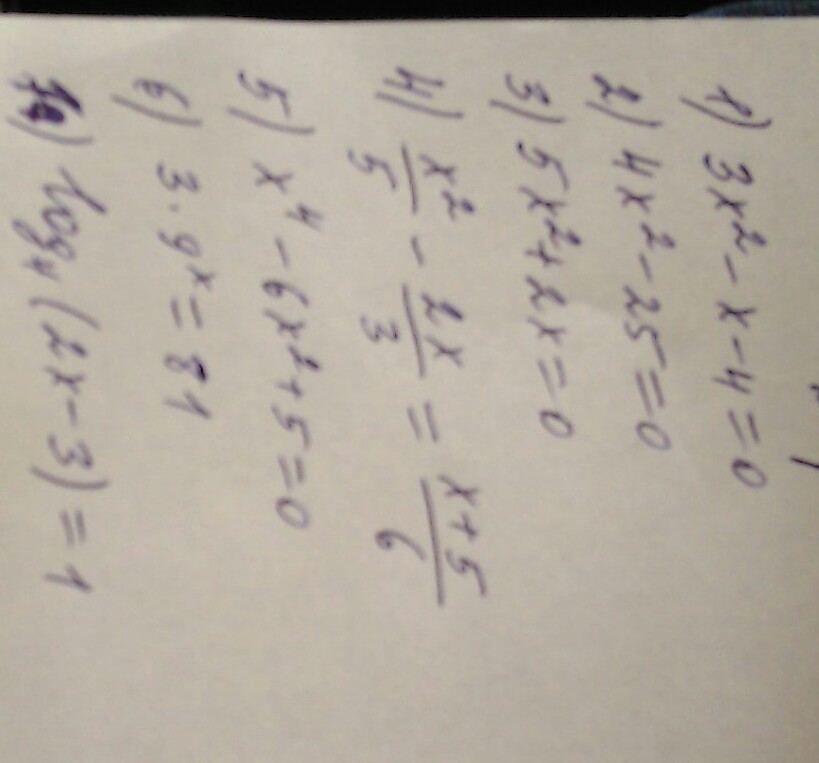 1) 3x² - x - 4 = 0
2) 4x² - 25 = 0
3) 5x² + 2x = 0
4) x²/5 - 2x/3 = (x+5)/6
5) x⁴ - 6x² + 5 = 0
6) 3 · 9ˣ = 81
log₄(2x - 3) = 1